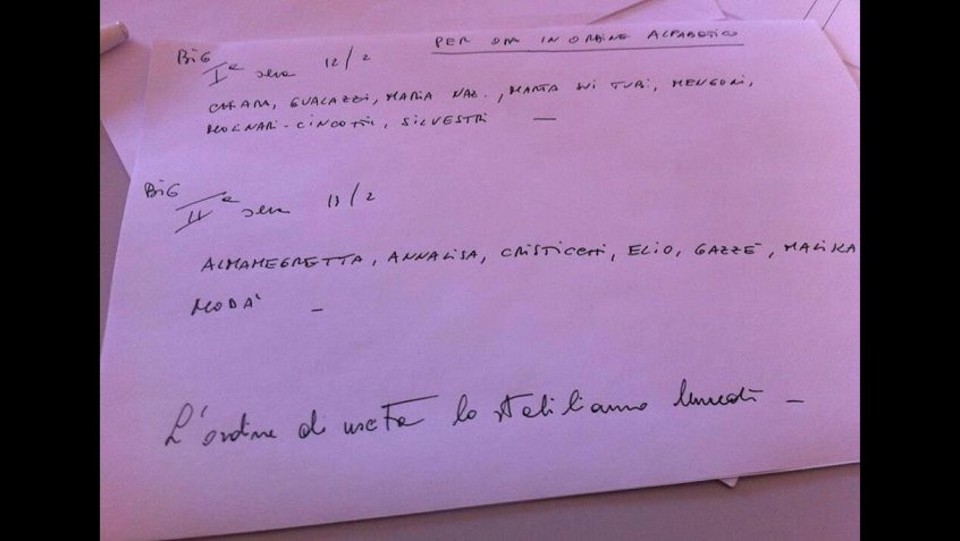 PER ORA IN ORDINE ALFABETICO
BIG
Iª sera 12/2
CHIARA, GUALAZZI, MARIA NAZ., MARTA SUI TUBI, MENGONI,
MOLINARI-CINCOTTI, SILVESTRI —
BIG
IIª sera 13/2
ALMAMEGRETTA, ANNALISA, CRISTICCHI, ELIO, GAZZÈ, MALIKA
MODA' –
L'ordine di uscita lo stabiliamo lunedì –